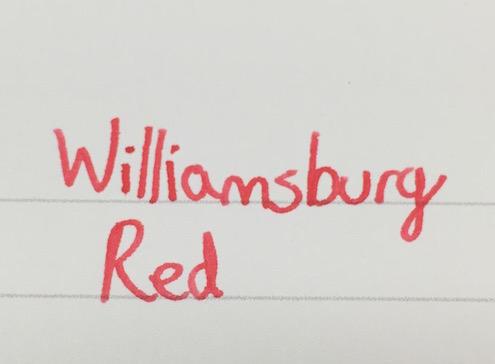 Williamsburg
Red